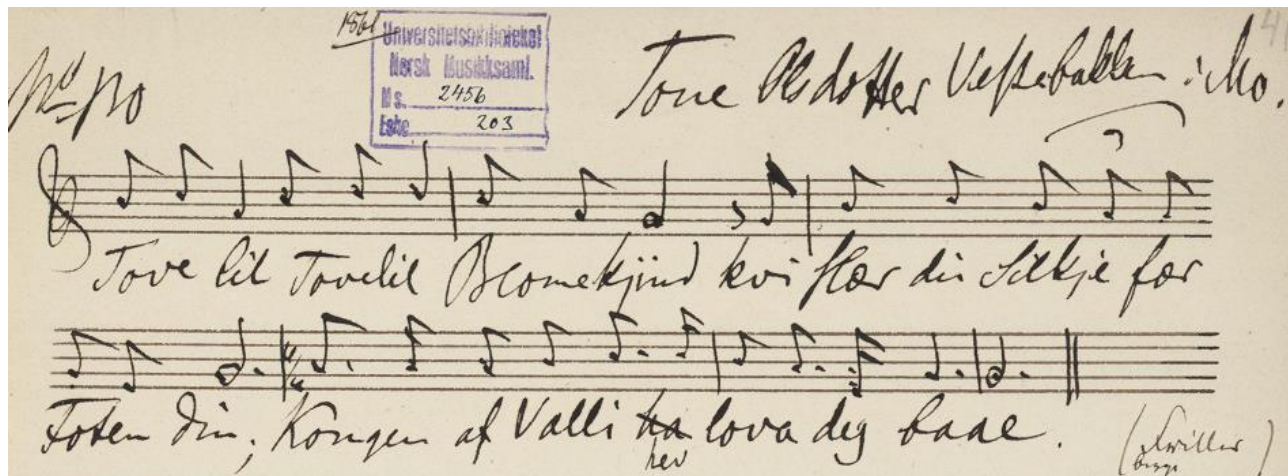 1861
Universitetsbiblioteket
Norsk Musikksaml.
Ms. 2456
Eske 203
No 110
Tone Olsdotter i Mo.
Tove lil Tovelil Blomekjind kvi slær du Silkje for
Foten din; Kongen af Valli ha lova deg baae.
hev